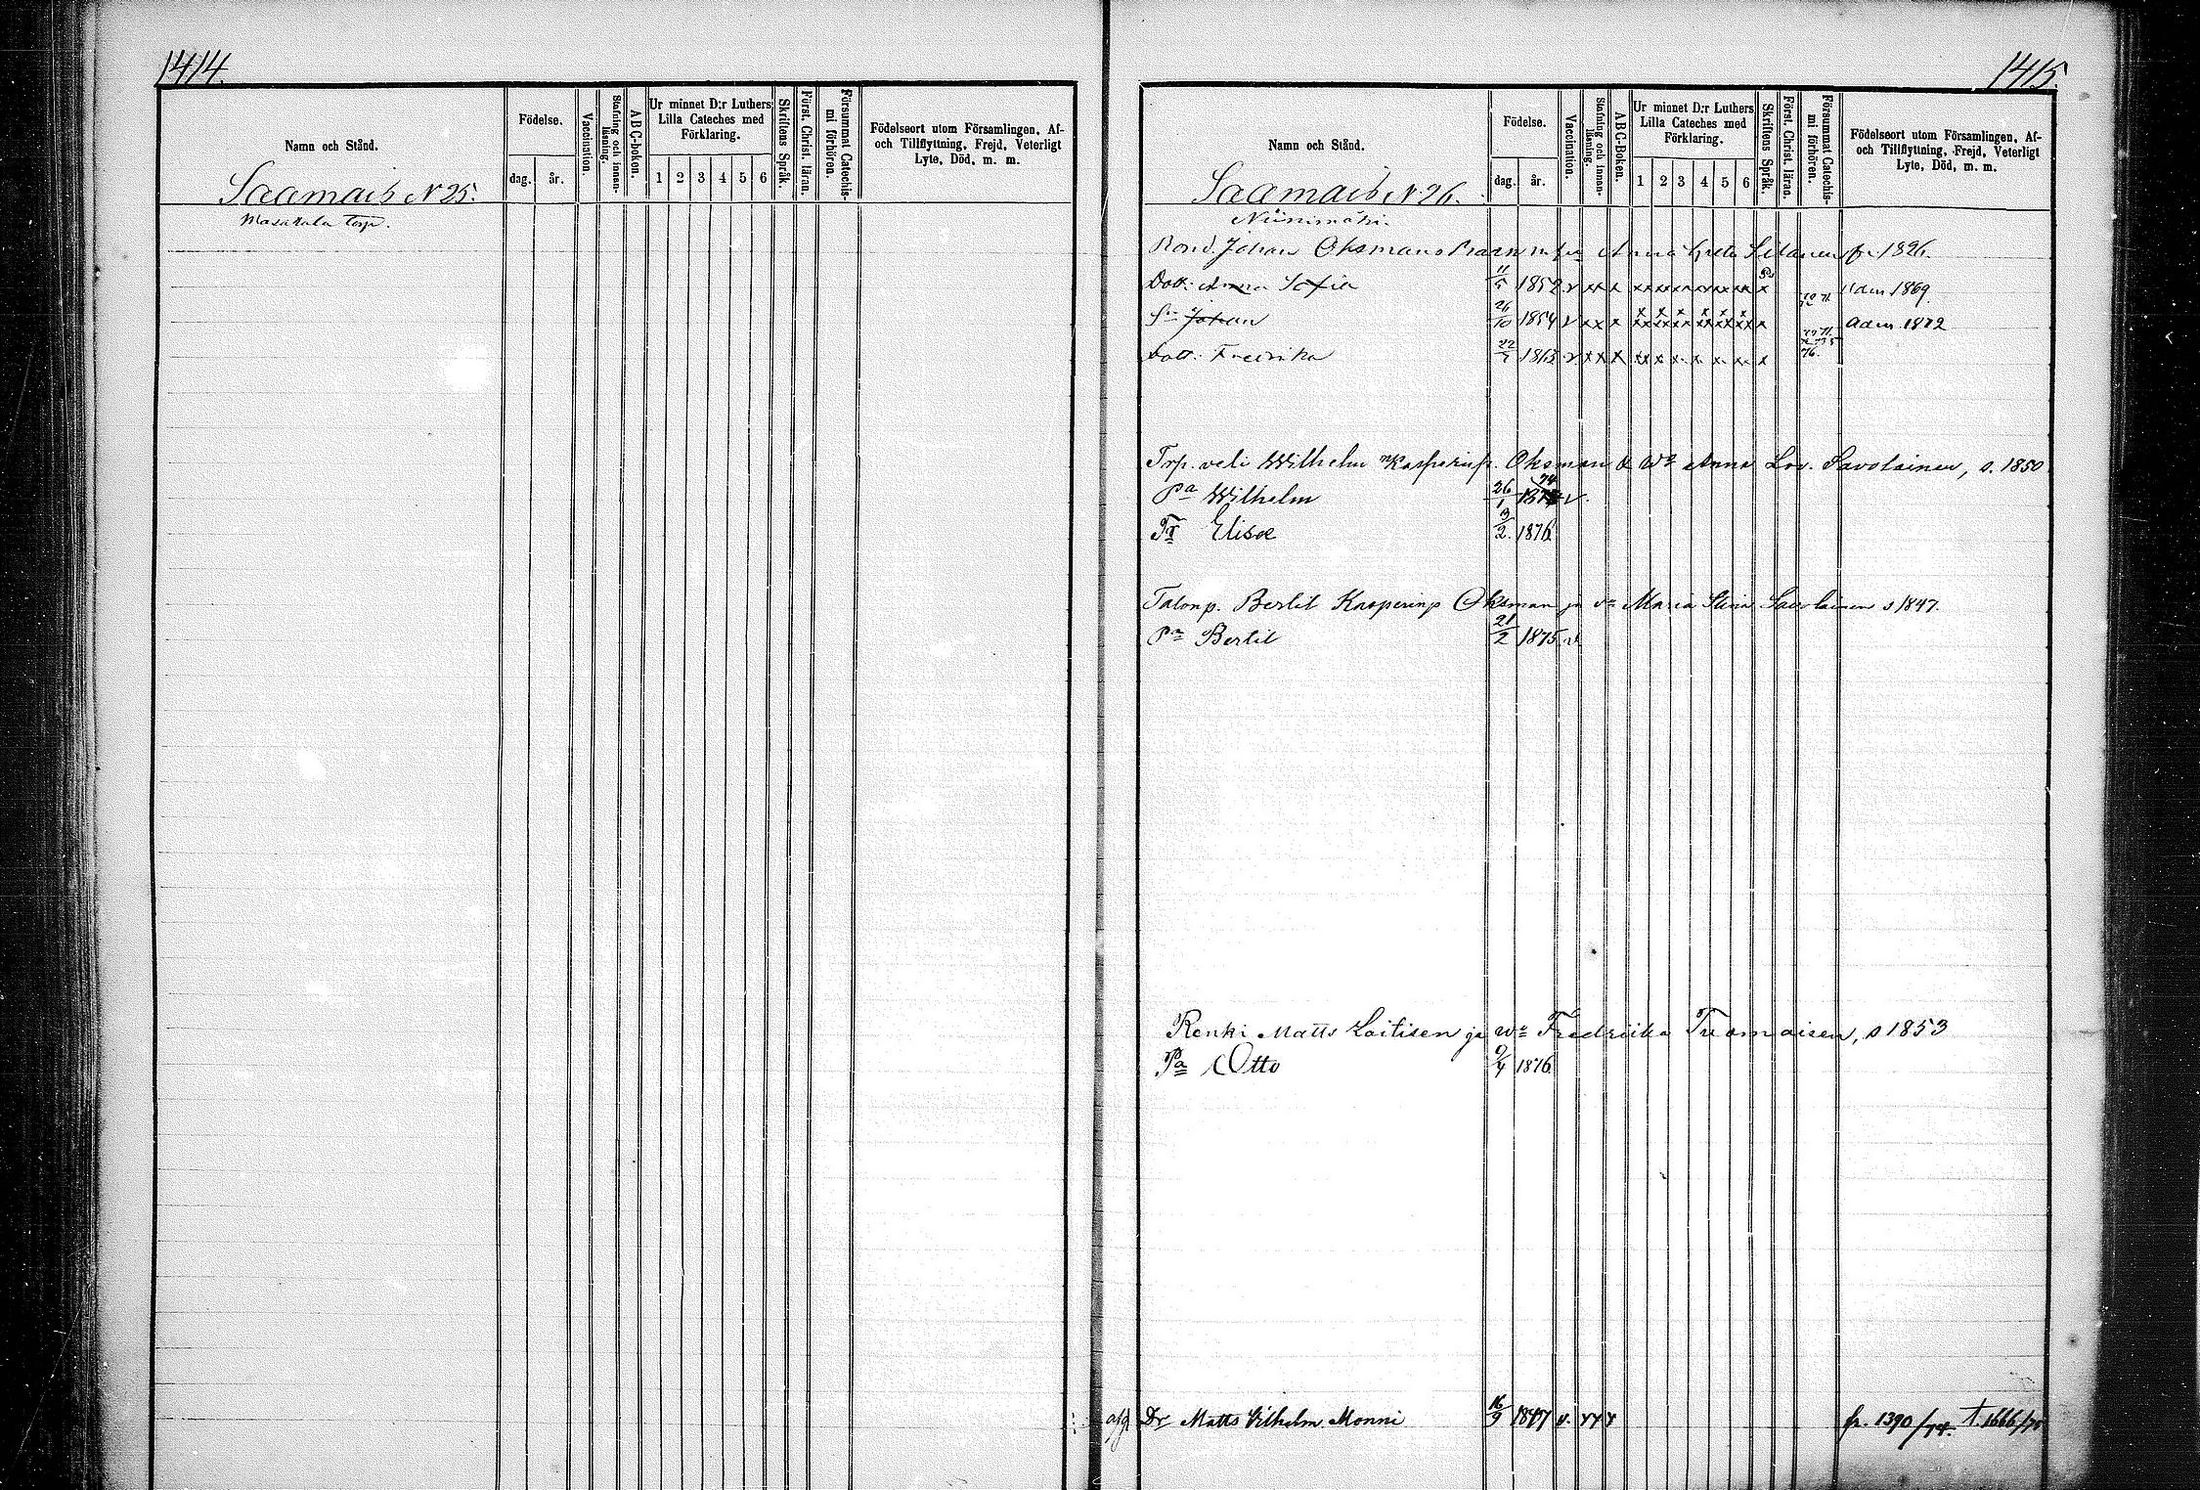 1414.
Namn och Stånd.
Födelse.
dag.
år.
Vaccination.
Stafning och innan-
läsning.
ABC-boken.
Ur minnet D:r Luthers
Lilla Cateches med
Förklaring.
1 2 3 4 5 6
Skriftens Språk.
Först. Christ. läran.
Försummat Catechis-
mi förhören.
Födelseort utom Församlingen, Af-
och Tillflyttning, Frejd, Veterligt
Lyte, Död, m. m.
Saamais N 25.
Masakala Torp.
1415.
Namn och Stånd.
Födelse.
dag.
år.
Vaccination.
Stafning och innan-
läsning.
ABC-Boken.
Ur minnet D:r Luthers
Lilla Cateches med
Förklaring.
1 2 3 4 5 6
Skriftens Språk.
Först. Christ. läran.
Försummat Catechis-
mi förhören.
Födelseort utom Församlingen, Af-
och Tillflyttning, Frejd, Veterligt
Lyte, Död, m. m.
Saamais N 26.
Niinimäki.
Bond. Johan Oksmans Barn Anna Greta
Dott: Anna Sofia 1852 v xx x Adm 1869
Sn Johan 26/10 1854 v xx x x adm. 1872
Dott: Fredrika 1863 v xx x 76.
Trp. veli Wilhelm Kasperinp. Oksman & Wo Anna Lov. Savolainen, s. 1850
Pa Wilhelm 26/1 74 v.
Tr Elisa 3/2 1876
Talonp. Bertil Kasperinp Oksman ja vo Maria Stina Savolainen s 1847.
Pa Bertil 21/2 1875 v.
Renki Matts Laitisen ja wo Fredriika Tuomaisen, s 1853
Pa Otto 9/4 1876
afg. Dr Matts Vilhelm Monni 16/9 1847 v. fr. 1390/74. t. 1666/75